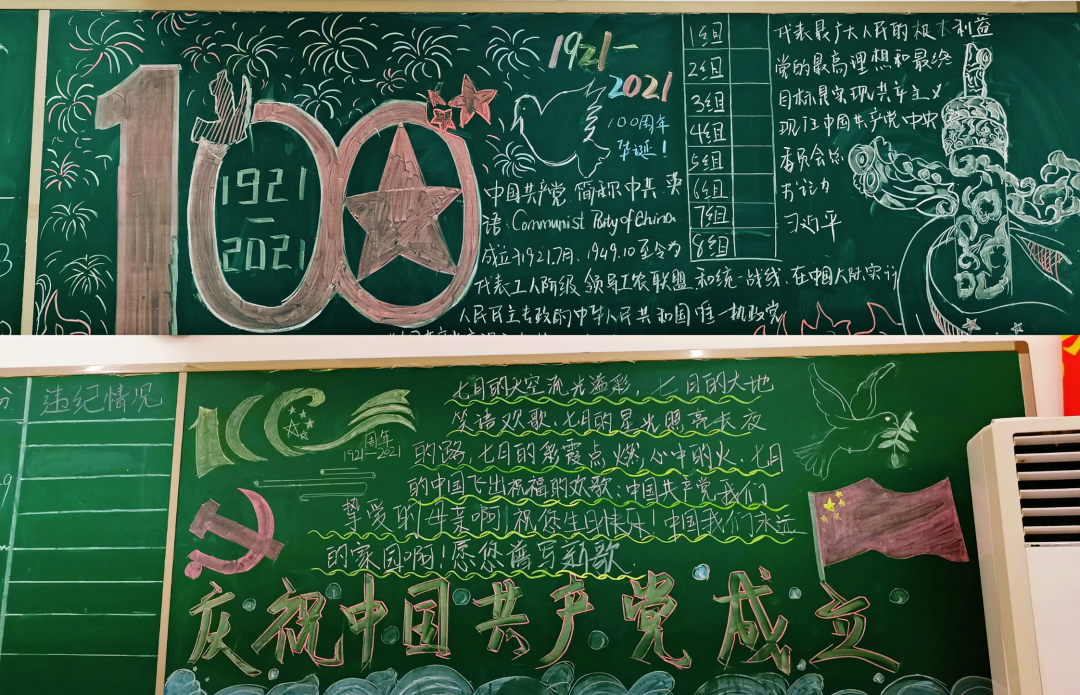 100
1921
—
2021
1921—
2021
100周年
华诞！
中国共产党 简称 中共 英
语. Communist Party of China
成立于1921.7月、1949.10至今为
代表工人阶级 领导工农联盟 和统一战线、在中国大陆实计
人民民主专政的中华人民共和国唯一执政党
1组
2组
3组
4组
5组
6组
7组
8组
代表最广大人民的根本利益
党的最高理想和最终
目标是实现共产主义
现任中国共产党中央
委员会总
书记为
习近平
违纪情况
100
周年
1921—2021
七月的天空流光溢彩，七月的大地
笑语欢歌、七月的星光照亮长夜
的路，七月的彩霞点燃，心中的火、七月
的中国飞出祝福的欢歌、中国共产党我们
挚爱的母亲啊！祝您生日快乐！中国我们永远
的家园啊！愿您谱写新歌.
庆祝中国共产党成立